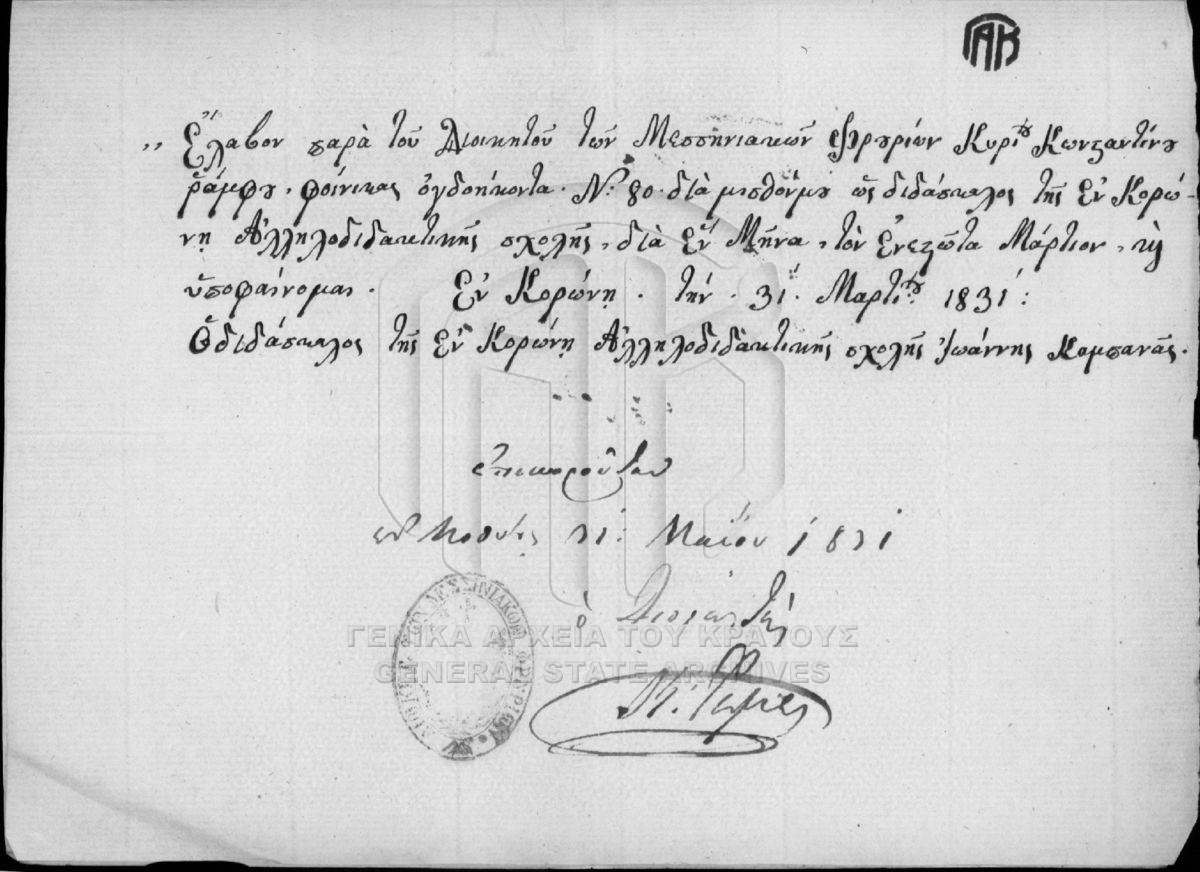 ΓΑΚ
,, Ἔλαβον παρὰ τοῦ Διοικητοῦ τῶν Μεσσηνιακῶν Φρουρίων Κυρίου Κωνσταντίνου
Ῥάμφου, φοίνικας ὀγδοήκοντα. Ν: 80. διὰ μισθόνμου ὡς διδάσκαλος τῆς ἐν Κορώ-
νῃ Ἀλληλοδιδακτικῆς σχολῆς, διὰ ἕν Μῆνα, τὸν ἐνεστῶτα Μάρτιον, καὶ
ὑποφαίνομαι. Ἐν Κορώνῃ. τὴν. 31. Μαρτίου 1831:
Ὁ διδάσκαλος τῆς ἐν Κορώνῃ Ἀλληλοδιδακτικῆς σχολῆς Ἰωάννης Καμπανᾶς.
ἐπικυροῦται
31: Μαΐου 1831
ὁ Διοικητὴς
Κ. Ράμφος
ΓΕΝΙΚΑ ΑΡΧΕΙΑ ΤΟΥ ΚΡΑΤΟΥΣ
GENERAL STATE ARCHIVES